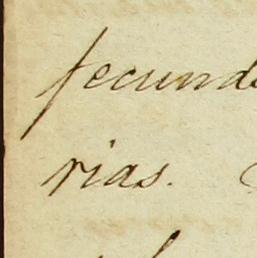 fecund
rias.